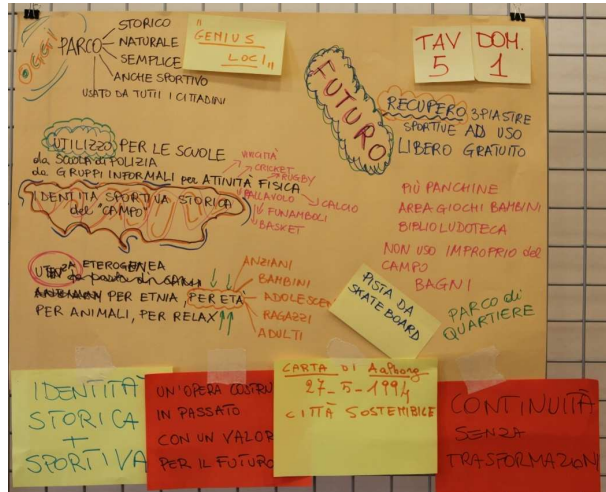 OGGI
PARCO
STORICO
NATURALE
SEMPLICE
ANCHE SPORTIVO
USATO DA TUTTI I CITTADINI
"GENIUS
LOCI"
TAV
5
DOM.
1
FUTURO
RECUPERO 3 PIASTRE
SPORTIVE AD USO
LIBERO GRATUITO
UTILIZZO PER LE SCUOLE
da SCUOLA di POLIZIA
da GRUPPI INFORMALI per ATTIVITÀ FISICA
CRICKET
RUGBY
CALCIO
PALLAVOLO
FUNAMBOLI
BASKET
IDENTITA SPORTIVA STORICA
del "CAMPO"
PIÙ PANCHINE
AREA GIOCHI BAMBINI
BIBLIOLUDOTECA
NON USO IMPROPRIO del
CAMPO
BAGNI
UTENZA ETEROGENEA
PER ETNIA, PER ETÀ
PER ANIMALI, PER RELAX
ANZIANI
BAMBINI
ADOLESCEN
RAGAZZI
ADULTI
PISTA DA
SKATEBOARD
PARCO di
QUARTIERE
IDENTITÀ
STORICA
+
SPORTIVA
UN'OPERA COSTRU
IN PASSATO
CON UN VALOR
PER IL FUTURO
CARTA DI Aalborg
27-5-1994
CITTÀ SOSTENIBILE
CONTINUITÀ
SENZA
TRASFORMAZIONI